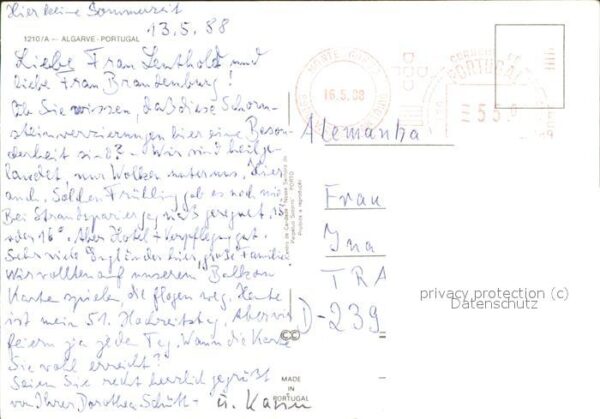 Hier keine Sommerzeit
13.5.88
1210/A - ALGARVE - PORTUGAL
Liebe Frau Leuthold und
liebe Frau Brandenburg!
Ob Sie wissen, daß diese Schorn-
steinverzierungen hier eine Beson-
derheit sind? - Wir sind heil ge-
landet, nur Wolken unter uns, hier
auch. Solchen Frühling gab es noch nie
Bei Strandspaziergang nicht geregnet, 15
oder 16°. Aber Hotel + Verpflegung gut.
Sehr viele Engländer hier, große Familie!
Wir wollten auf unserem Balkon
Karten spielen, die flogen weg. Heute
ist mein 51. Hochzeitstag, aber wir
feiern ja jeden Tag. Wann die Karte
Sie wohl erreicht?
Seien Sie recht herzlich gegrüßt
von Ihrer Dorothea Schütt - u. Karin
MADE
IN
PORTUGAL
16.5.88
CORREIOS
PORTUGAL
55,0
Alemanha
Frau
Ina
TRA
D-239
privacy protection (c)
Datenschutz